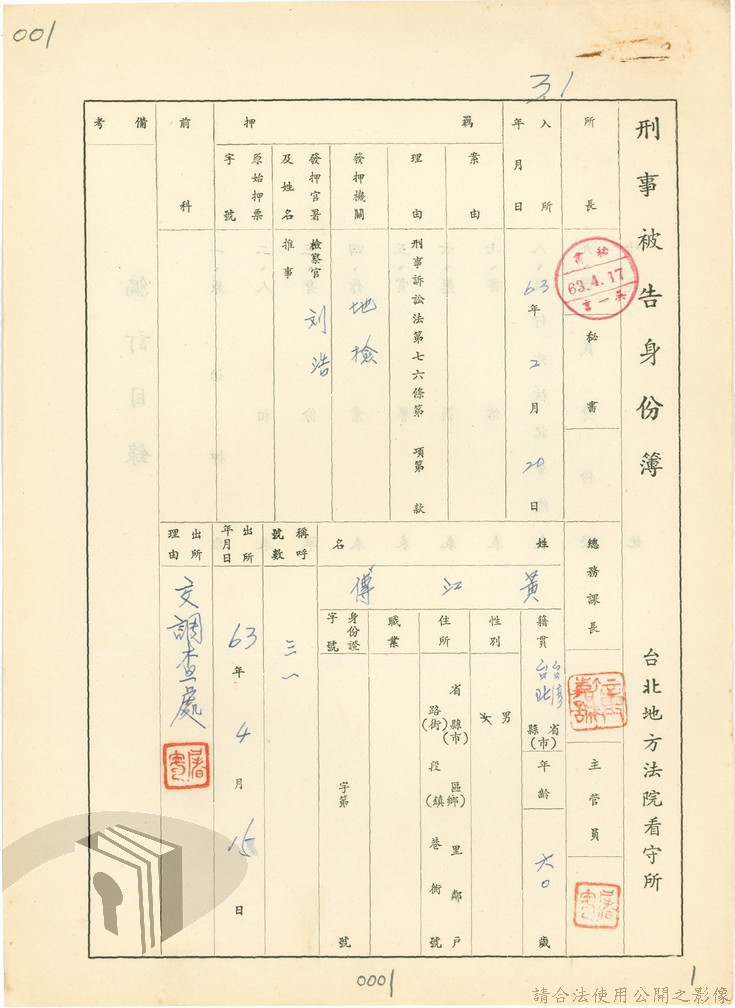 001
31
刑事被告身份簿
台北地方法院看守所
所長
秘書
63.4.17
總務課長
主管員
入所年月日
63年2月20日
羈押
案由
理由
刑事訴訟法第七六條第 項第 款
發押機關
地檢
發押官署及姓名
檢察官
推事
刘浩
原始押票字號
前科
備考
姓名
黃江傳
籍貫
台灣省
台北縣(市)
年齡
六〇歲
性別
男
女
住所
省縣(市)區(鄉)里鄰戶
路(街)段(鎮)巷衖號
職業
身份證字號
字第 號
稱呼號數
三一
出所年月日
63年4月15日
出所理由
交調查處
編訂目錄
0001
1
請合法使用公開之影像